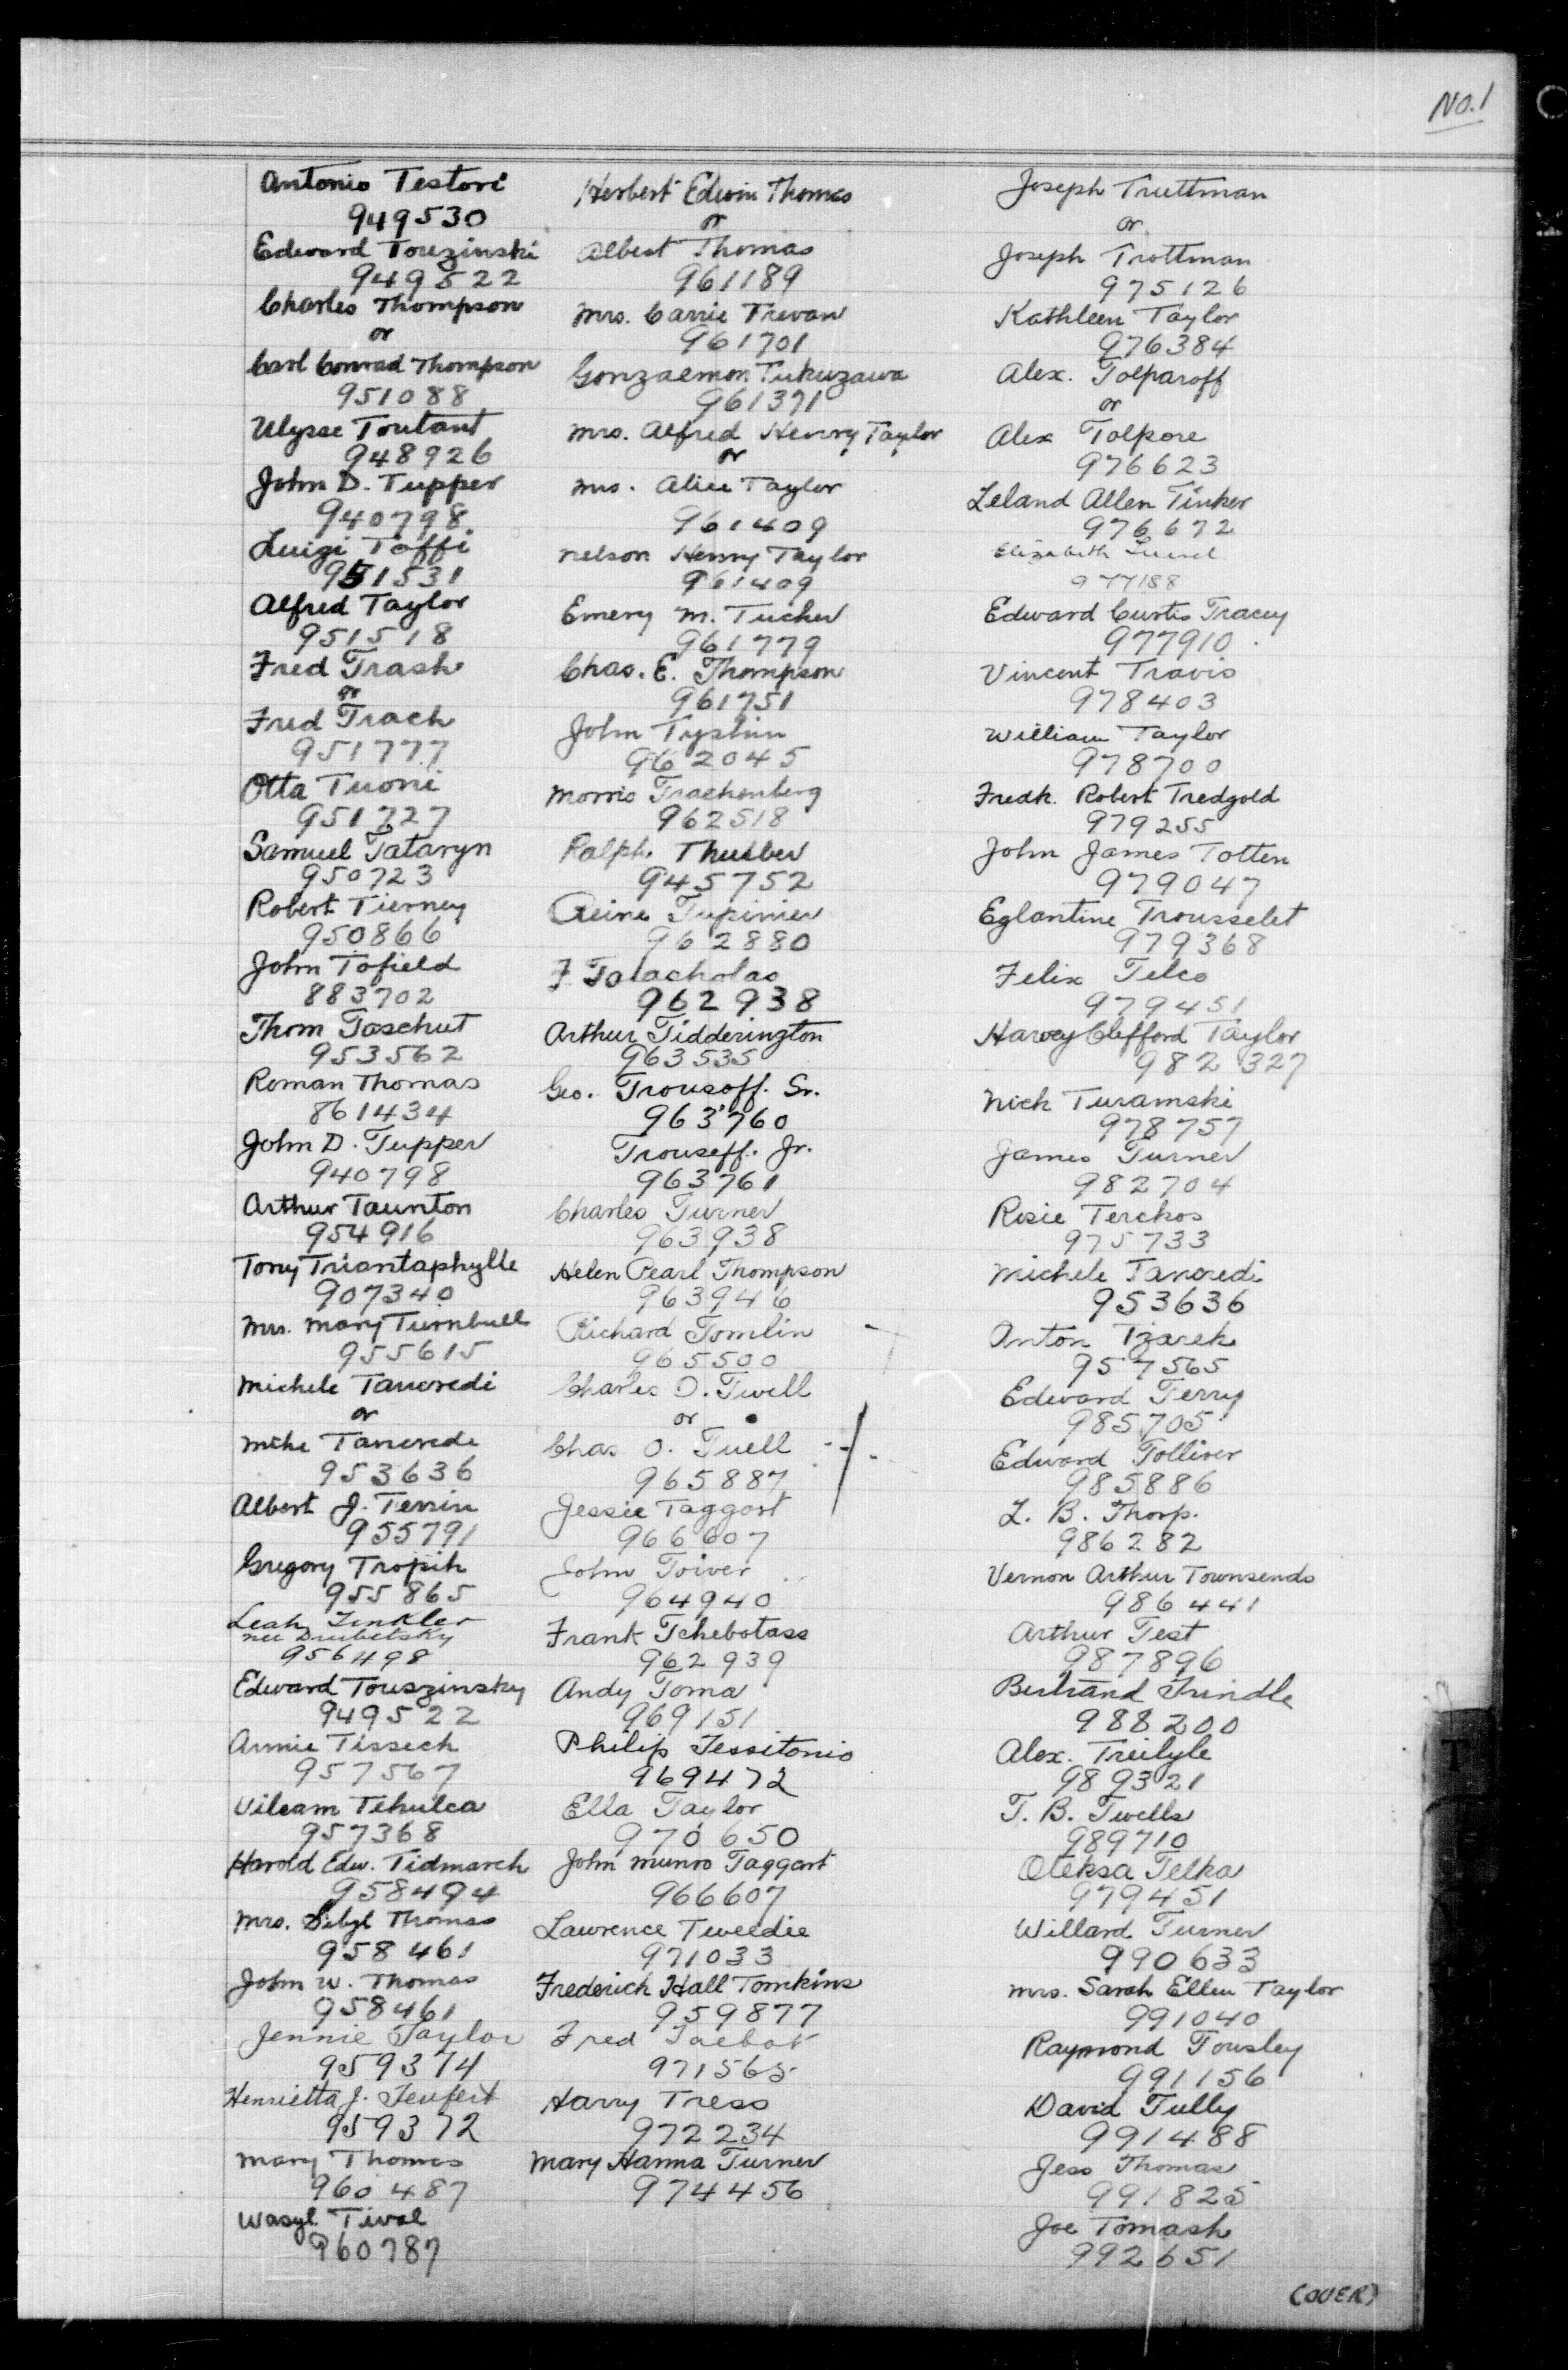 No. 1
Antonio Testori
949530
Edward Touzinski
949522
Charles Thompson
or
Carl Conrad Thompson
951088
Ulysse Toutant
948926
John D. Tupper
940798
Luigi Toffi
951531
Alfred Taylor
951518
Fred Trash
or
Fred Trach
951777
Otta Tuoni
951727
Samuel Tataryn
950723
Robert Tierney
950866
John Tofield
883702
Thom Taschut
953562
Roman Thomas
861434
John D. Tupper
940798
Arthur Taunton
954916
Tony Triantaphylle
907340
Mrs. Mary Turnbull
955615
Michele Tancredi
or
Mike Tancrede
953636
Albert J. Tersin
955791
Gregory Tropik
955865
Leah Tinkler
nee Drubetsky
956498
Edward Touszinsky
949522
Annie Tissech
957567
Vilcam Tehulca
957368
Harold Edw. Tidmarch
958494
Mrs. Sibyl Thomas
958461
John W. Thomas
958461
Jennie Taylor
959374
Henrietta J. Teufert
959372
Mary Thomas
960487
Wasyl Tival
960787
Herbert Edwin Thomas
or
Albert Thomas
961189
Mrs. Carrie Trevan
961701
Gonzaemon Tukuzawa
961371
Mrs. Alfred Henry Taylor
or
Mrs. Alice Taylor
961409
Nelson Henry Taylor
961409
Emery M. Tucker
961779
Chas. E. Thompson
961751
John Tyshin
962045
Morris Trachenberg
962518
Ralph Thurber
945752
Reine Tupinier
962880
F. Taracholas
962938
Arthur Tidderington
963535
Geo. Trousoff. Sr.
963760
Trouseff. Jr.
963761
Charles Turner
963938
Helen Pearl Thompson
963946
Richard Tomlin
965500
Charles O. Twell
or
Chas. O. Tuell
965887
Jessie Taggart
966607
John Toiver
964940
Frank Tchebotass
962939
Andy Toma
969151
Philip Tessitonio
969472
Ella Taylor
970650
John Munro Taggart
966607
Lawrence Tweedie
971033
Frederick Hall Tomkins
959877
Fred Talbot
971565
Harry Tress
972234
Mary Hanna Turner
974456
Joseph Truttman
or
Joseph Trottman
975126
Kathleen Taylor
976384
Alex. Tolparoff
or
Alex Tolpore
976623
Leland Allen Tinker
976672
Elizabeth
977188
Edward Curtis Tracey
977910
Vincent Travis
978403
William Taylor
978700
Fredk. Robert Tredgold
979255
John James Totten
979047
Eglantine Trousselet
979368
Felix Telco
979451
Harvey Clifford Taylor
982327
Nick Turamski
978757
James Turner
982704
Rosie Terckos
975733
Michele Tancredi
953636
Anton Tzarek
957565
Edward Terry
985705
Edward Tolliver
985886
L. B. Thorp.
986282
Vernon Arthur Townsends
986441
Arthur Test
987896
Bertrand Trindle
988200
Alex. Treilyle
989321
T. B. Twells
989710
Oleksa Telka
979451
Willard Turner
990633
Mrs. Sarah Ellen Taylor
991040
Raymond Tousley
991156
David Tully
991488
Jess Thomas
991825
Joe Tomash
992651
(OVER)